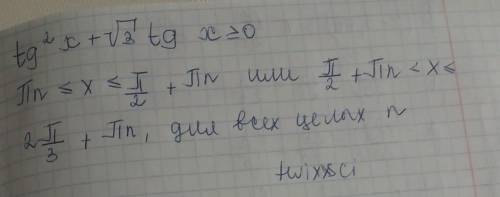 tg² x + √3 tg x ≥ 0
πn ≤ x ≤ π/2 + πn или π/2 + πn < x ≤
2π/3 + πn, для всех целых n
twixxsci